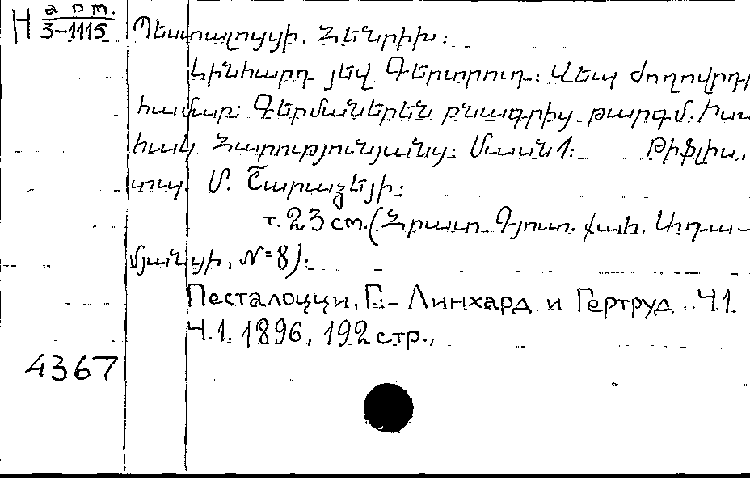 H арт.
3-1115
Պեստալոցցի, Հենրիխ:
Լինհարդ յեվ Գերտրուդ: Վեպ ժողովրդի
համար: Գերմաներեն բնագրից թարգմ. Իսա
հակ Հարությունյանց: Մասն 1: Թիֆլիս,
տպ. Մ. Շարաձեյի:
т. 23 см. (Հրատ. Գյուտ. քահ. Աղա-
մյանցի, №8).
Песталоцци, Г. - Линхард и Гертруд. Ч.1.
Ч.1. 1896, 192 стр.,
4367